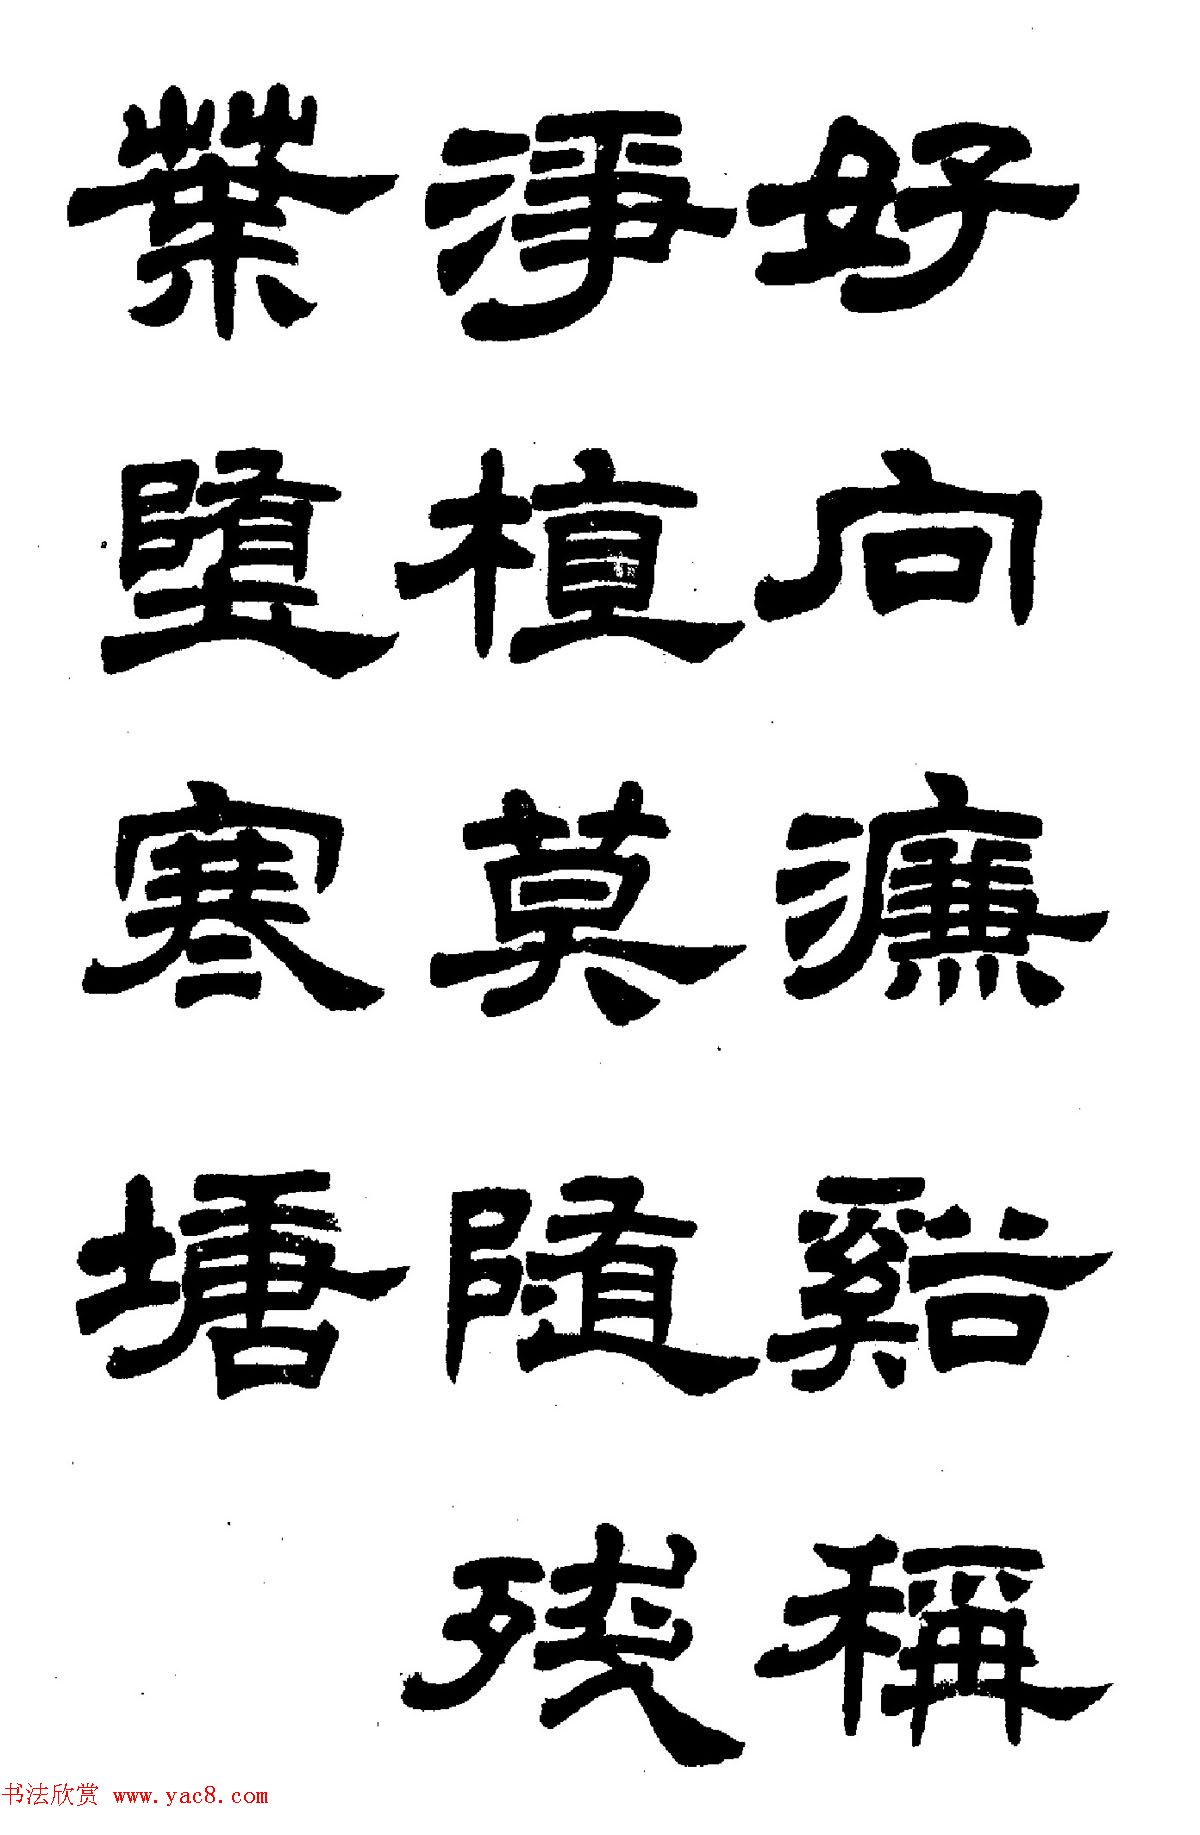 好向濂谿稱
淨植莫隨殘
葉墮寒塘
书法欣赏 www.yac8.com